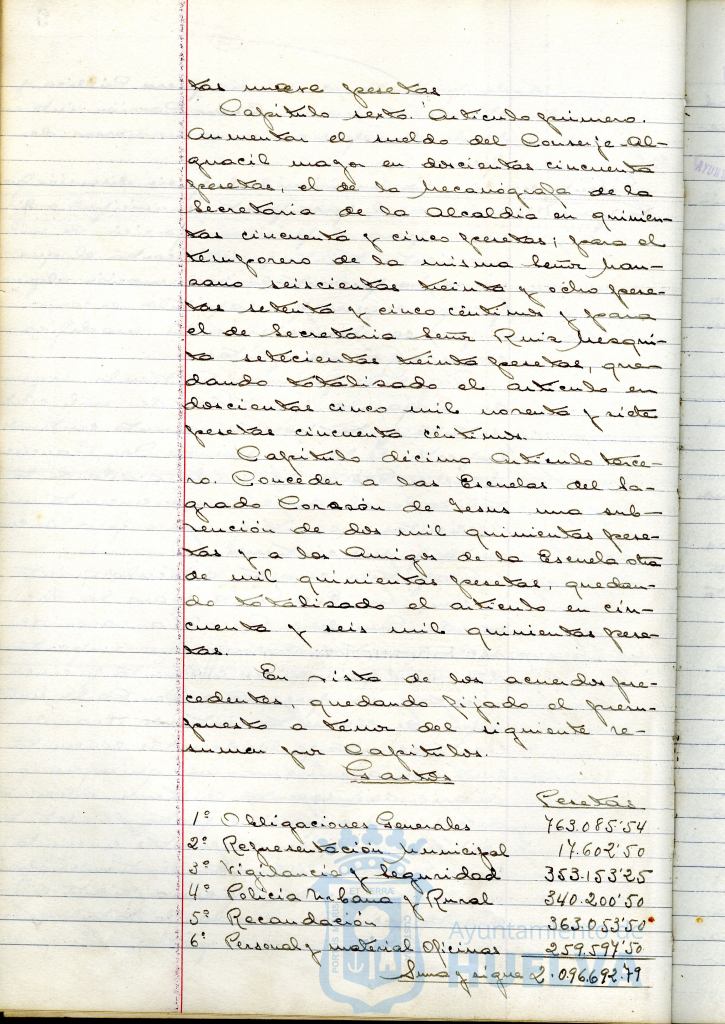 tas nueve pesetas
Capítulo sexto. Artículo primero.
Aumentar el sueldo del Conserje Al-
guacil mayor en doscientas cincuenta
pesetas, el de la Mecanógrafa de la
Secretaria de la Alcaldia en quinien-
tas cincuenta y cinco pesetas; para el
temporero de la misma Señor Man-
zano seiscientas treinta y ocho pese-
tas setenta y cinco céntimos y para
el de Secretaria Señor Ruiz Mesqui-
ta setecientas treinta pesetas, que-
dando totalizado el artículo en
doscientas cinco mil noventa y siete
pesetas cincuenta céntimos.
Capítulo décimo Artículo terce-
ro. Conceder a las Escuelas del Sa-
grado Corazón de Jesus una sub-
vención de dos mil quinientas pese-
tas y a los Amigos de la Escuela otra
de mil quinientas pesetas, quedan-
do totalizado el artículo en cin-
cuenta y seis mil quinientas pese-
tas.
En vista de los acuerdos pre-
cedentes, quedando fijado el presu-
puesto a tenor del siguiente re-
sumen por Capítulos.
Gastos
Pesetas
1º Obligaciones Generales 763.085'54
2º Representación Municipal 17.602'50
3º Vigilancia y Seguridad 353.153'25
4º Policia Urbana y Rural 340.200'50
5º Recaudación 363.053'50
6º Personal y material Oficinas 259.597'50
Suma y sigue 2.096.692'79
Ayuntamiento de
HUELVA